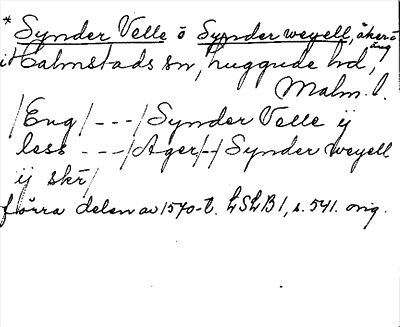 * Synder Velle o Synder weyell, åker o äng
i Halmstads sn, Luggude hd,
Malm. l.
/Eng/---/Synder Velle ij
less ---/Ager/-/Synder weyell
ij skr/
förra delen av 1570-t. LSLB 1, s. 541. orig.